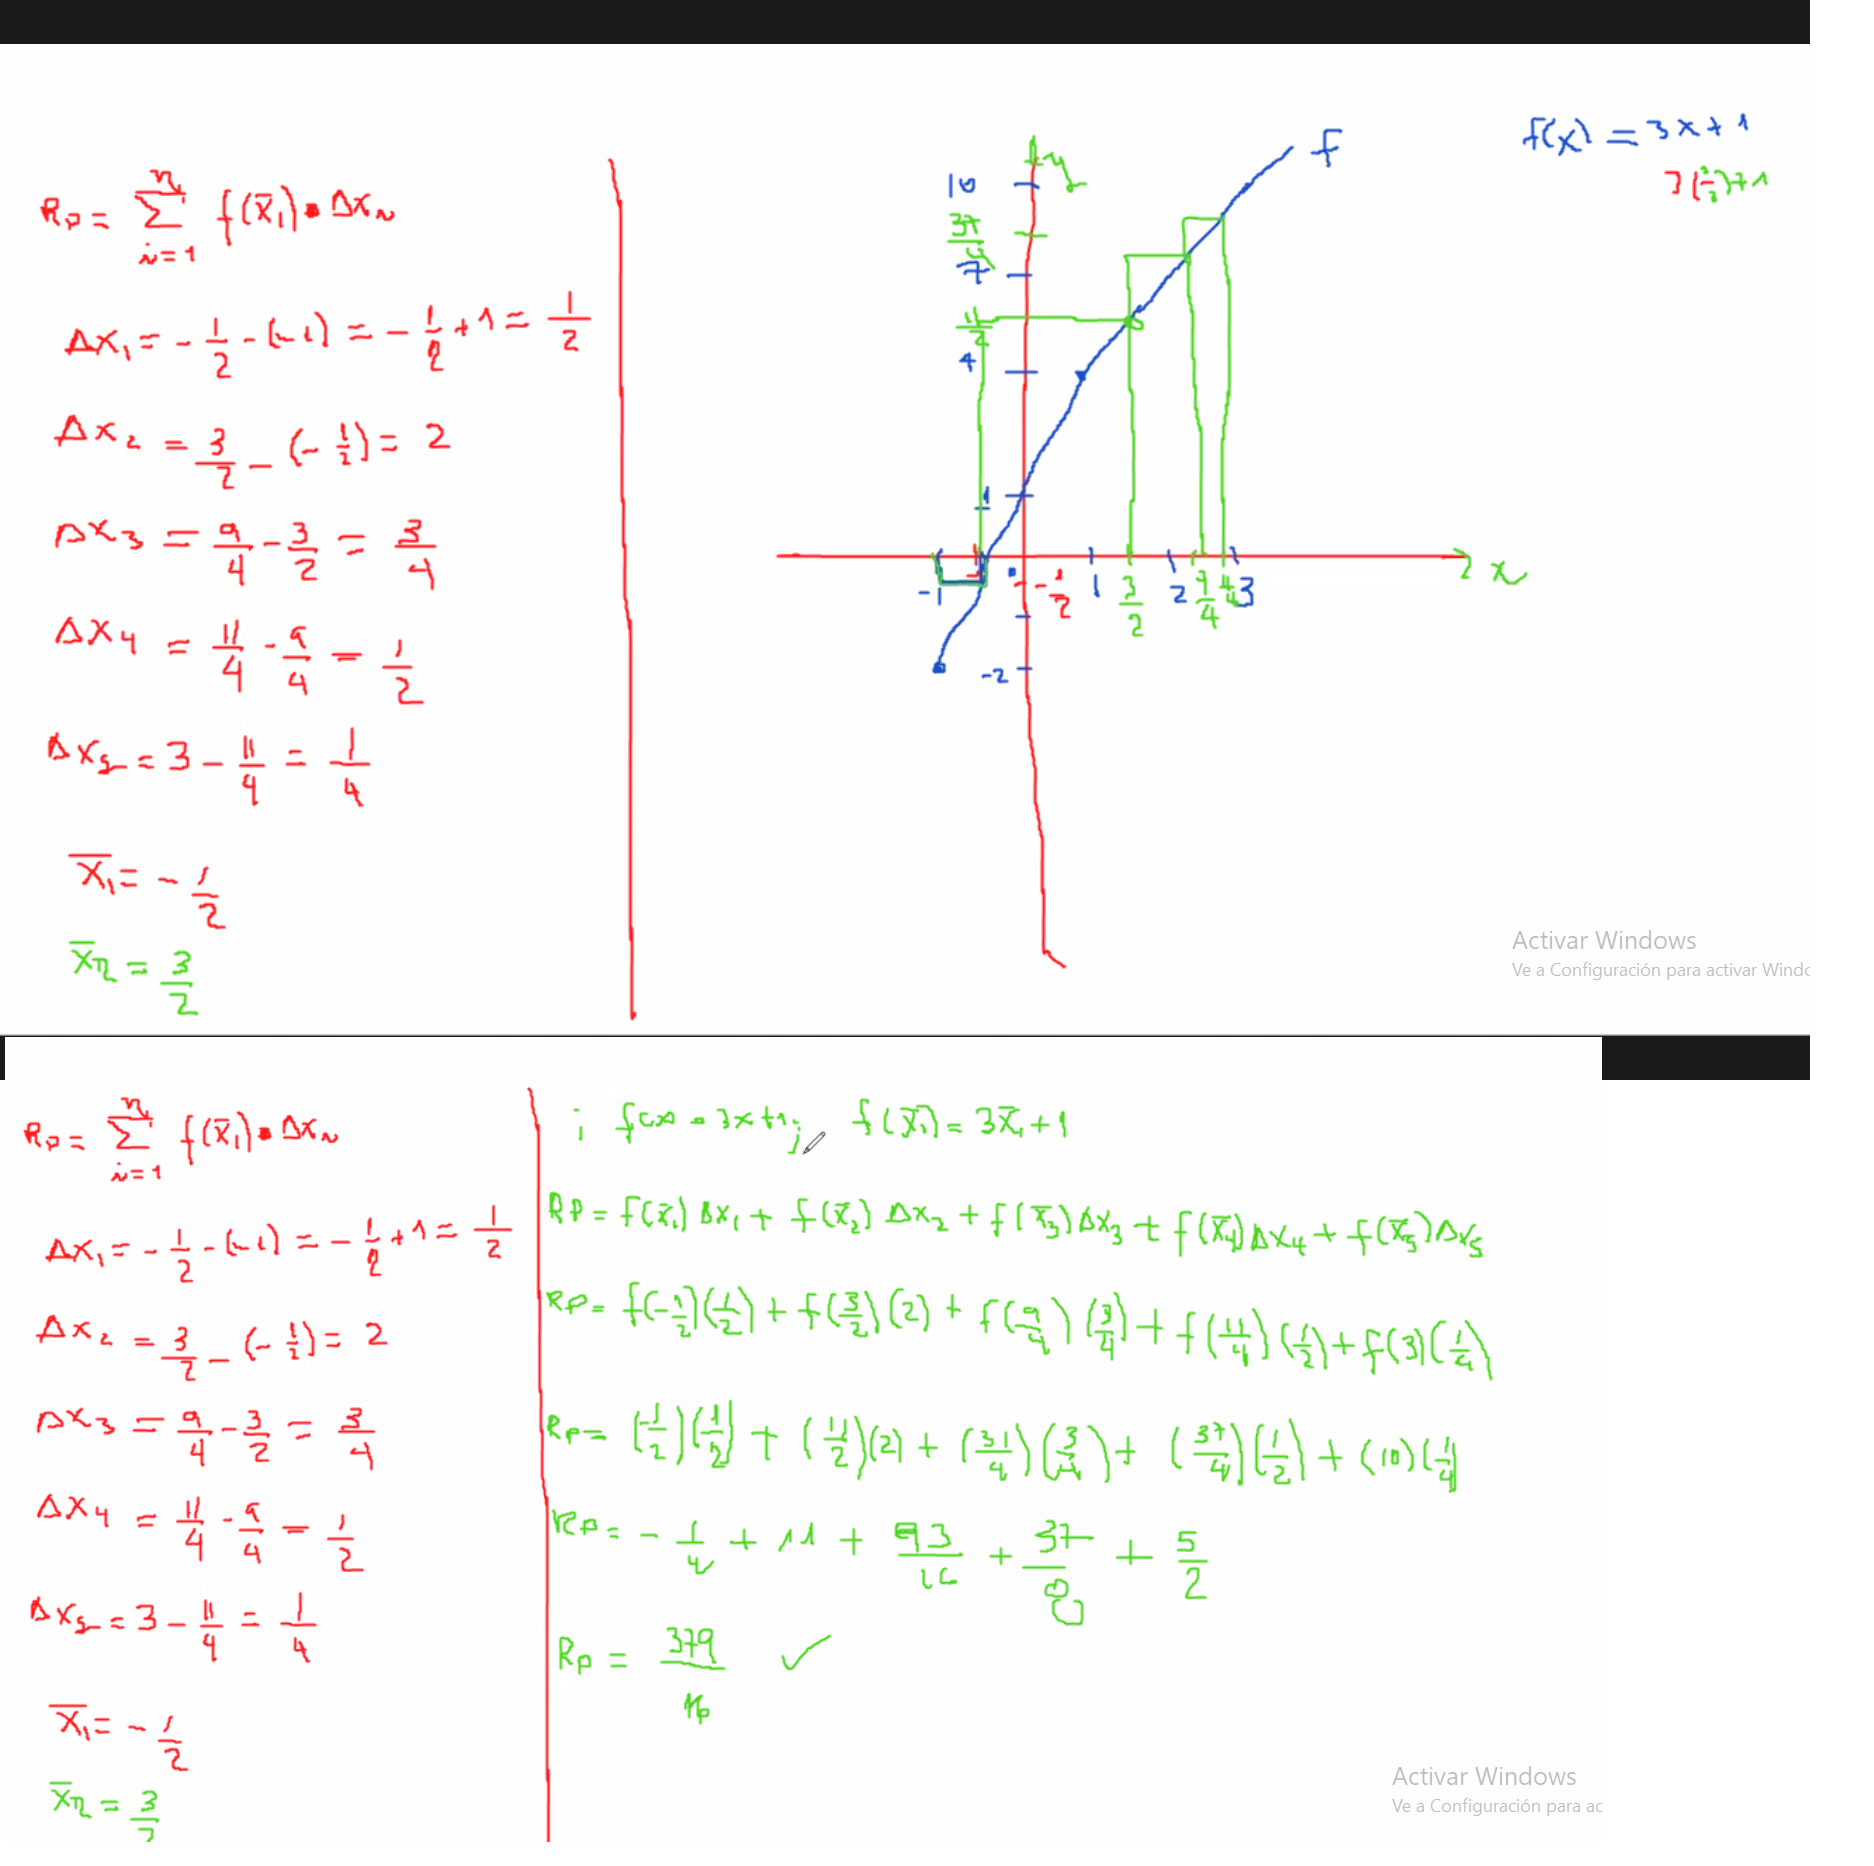 f(x) = 3x + 1
R_P = Σ_{i=1}^{n} f(x̄_i) · Δx_n
Δx₁ = -1/2 - (-1) = -1/2 + 1 = 1/2
Δx₂ = 3/2 - (-1/2) = 2
Δx₃ = 9/4 - 3/2 = 3/4
Δx₄ = 11/4 - 9/4 = 1/2
Δx₅ = 3 - 11/4 = 1/4
x̄₁ = -1/2
x̄₂ = 3/2
y
f
10
37/4
7
11/2
4
1
-1 0 -1/2 1 3/2 2 9/4 11/4 3 x
-2
Activar Windows
Ve a Configuración para activar Windo
R_P = Σ_{i=1}^{n} f(x̄_i) · Δx_n
Δx₁ = -1/2 - (-1) = -1/2 + 1 = 1/2
Δx₂ = 3/2 - (-1/2) = 2
Δx₃ = 9/4 - 3/2 = 3/4
Δx₄ = 11/4 - 9/4 = 1/2
Δx₅ = 3 - 11/4 = 1/4
x̄₁ = -1/2
x̄₂ = 3/2
; f(x) = 3x+1; f(x̄₁) = 3x̄₁ + 1
RP = f(x̄₁) Δx₁ + f(x̄₂) Δx₂ + f(x̄₃) Δx₃ + f(x̄₄) Δx₄ + f(x̄₅) Δx₅
RP = f(-1/2)(1/2) + f(3/2)(2) + f(9/4)(3/4) + f(11/4)(1/2) + f(3)(1/4)
RP = (-1/2)(1/2) + (11/2)(2) + (31/4)(3/4) + (37/4)(1/2) + (10)(1/4)
RP = -1/4 + 11 + 93/16 + 37/8 + 5/2
RP = 379/16 ✓
Activar Windows
Ve a Configuración para ac